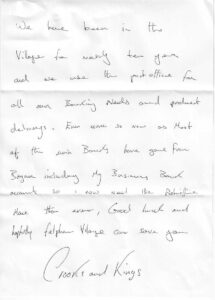 We have been in the
Village for nearly ten years
and we use the post office for
all our Banking Needs and product
delivery. Even more so now as Most
of the main Banks have gone from
Bognor including My Business Bank
account so i now need the
than ever, Good luck and
hopefully felpham Village can save you
Crooks and Kings